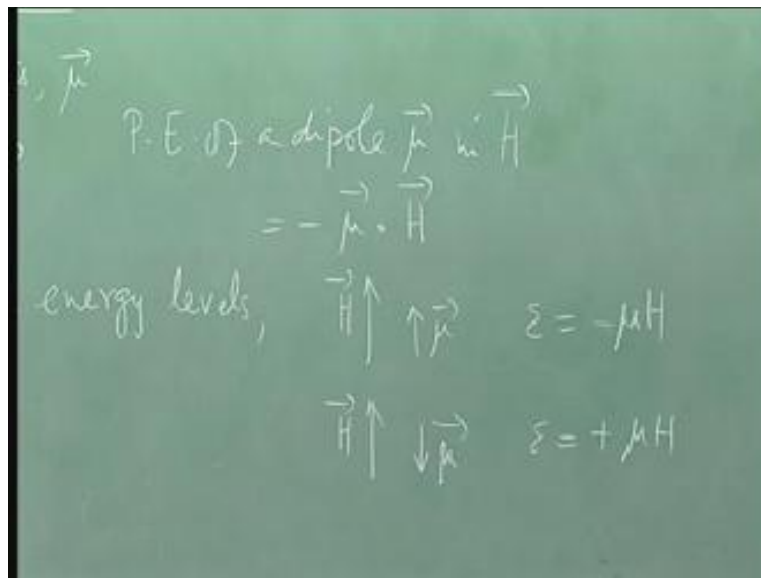 s, μ⃗
P.E. of a dipole μ⃗ in H⃗
= - μ⃗ · H⃗
energy levels, H⃗ ↑ ↑ μ⃗ ε = -μH
H⃗ ↑ ↓ μ⃗ ε = + μH